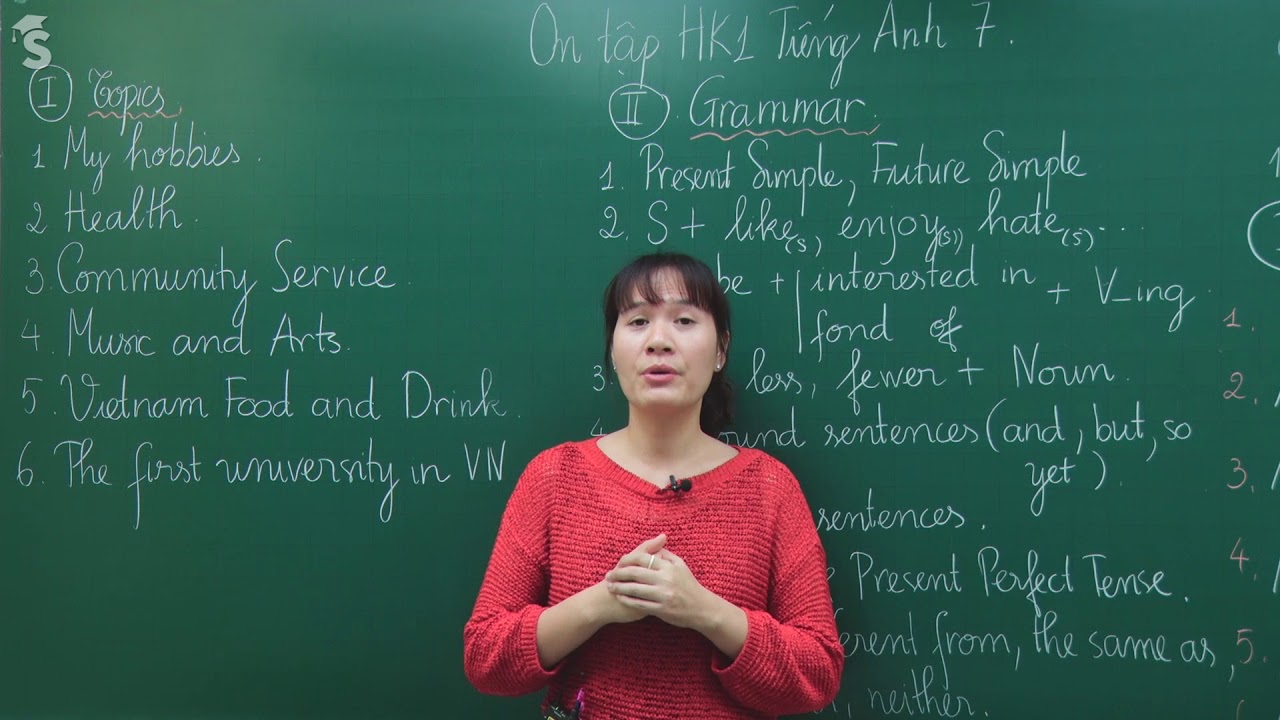 S
Ôn tập HK1 Tiếng Anh 7.
I Topics
1 My hobbies.
2 Health.
3. Community Service.
4. Music and Arts.
5. Vietnam Food and Drink.
6. The first university in VN
II. Grammar.
1. Present Simple, Future Simple
2. S + like(s), enjoy(s), hate(s)...
be + interested in + V_ing.
fond of
3. less, fewer + Noun.
4 sentences (and, but, so
yet).
sentences.
Present Perfect Tense.
from, the same as,
neither.
1.
2.
3.
4.
5.